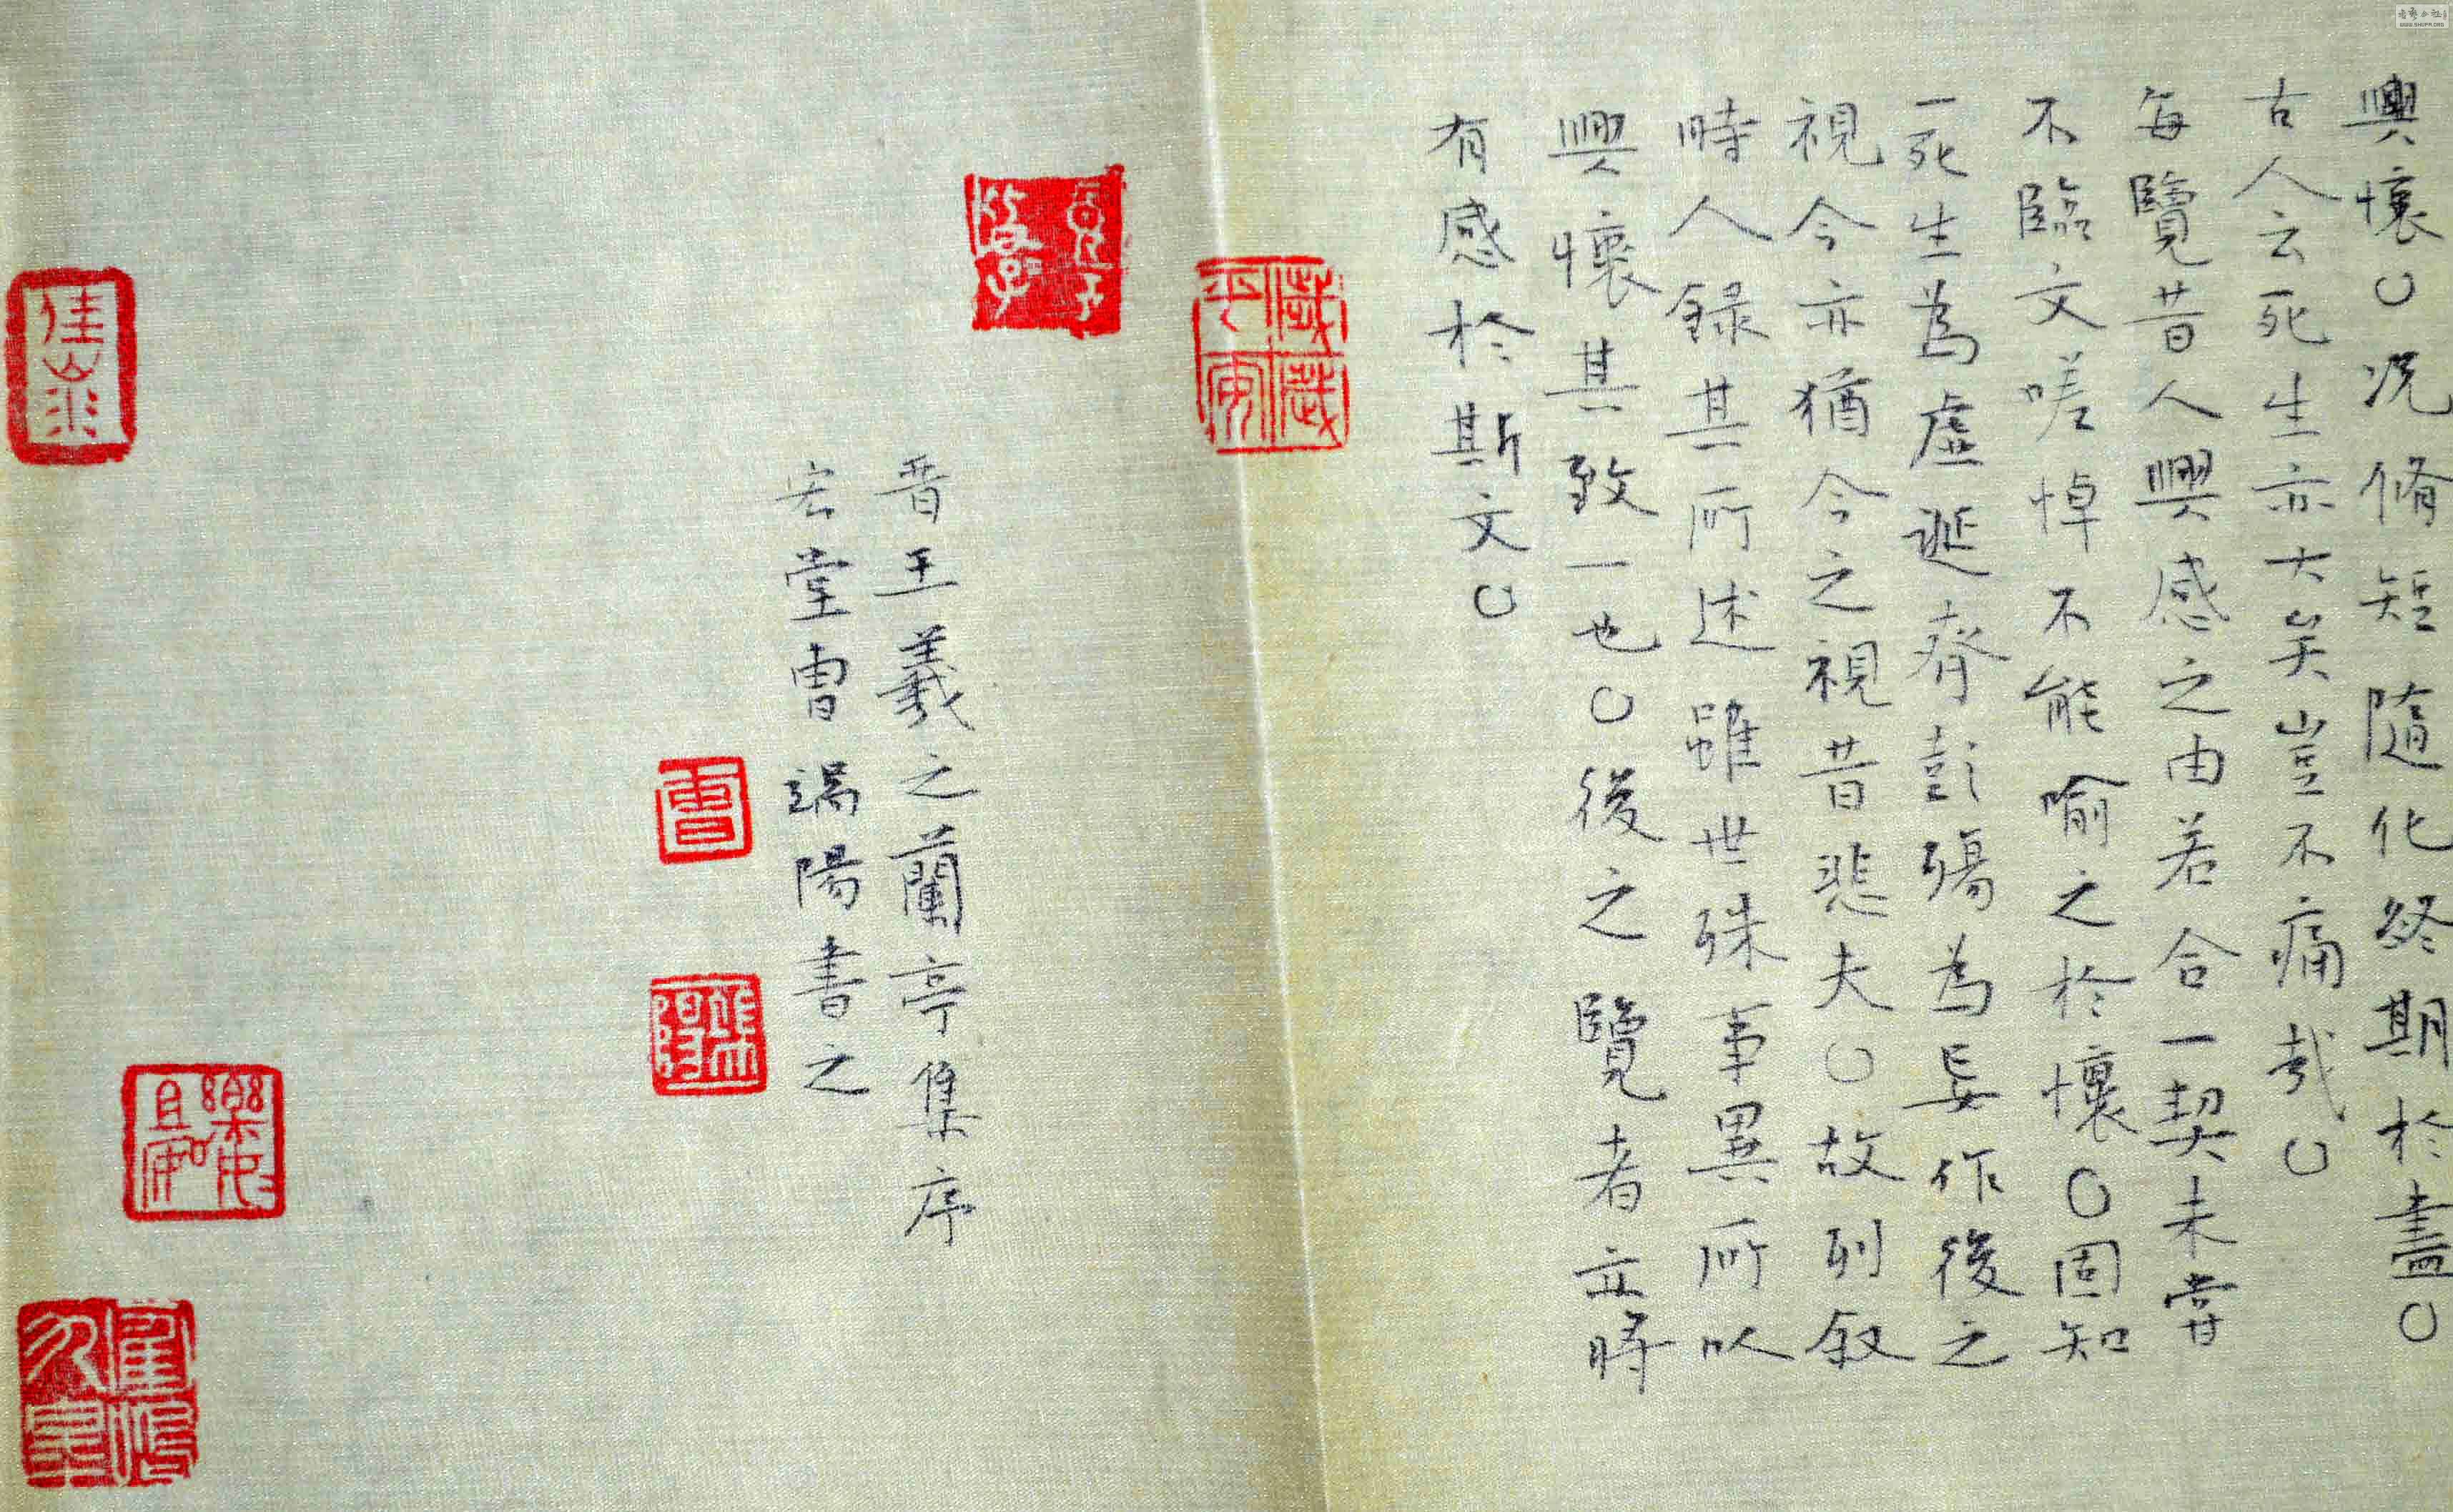 興懷〇況脩短隨化終期於盡〇
古人云死生亦大矣豈不痛哉〇
每覽昔人興感之由若合一契未嘗
不臨文嗟悼不能喻之於懷〇固知
一死生為虛誕齊彭殤為妄作後之
視今亦猶今之視昔悲夫〇故列敘
時人錄其所述雖世殊事異所以
興懷其致一也〇後之覽者亦將
有感於斯文〇
歲歲平安
晋王羲之蘭亭集序
宏堂曹端陽書之
曹
端陽